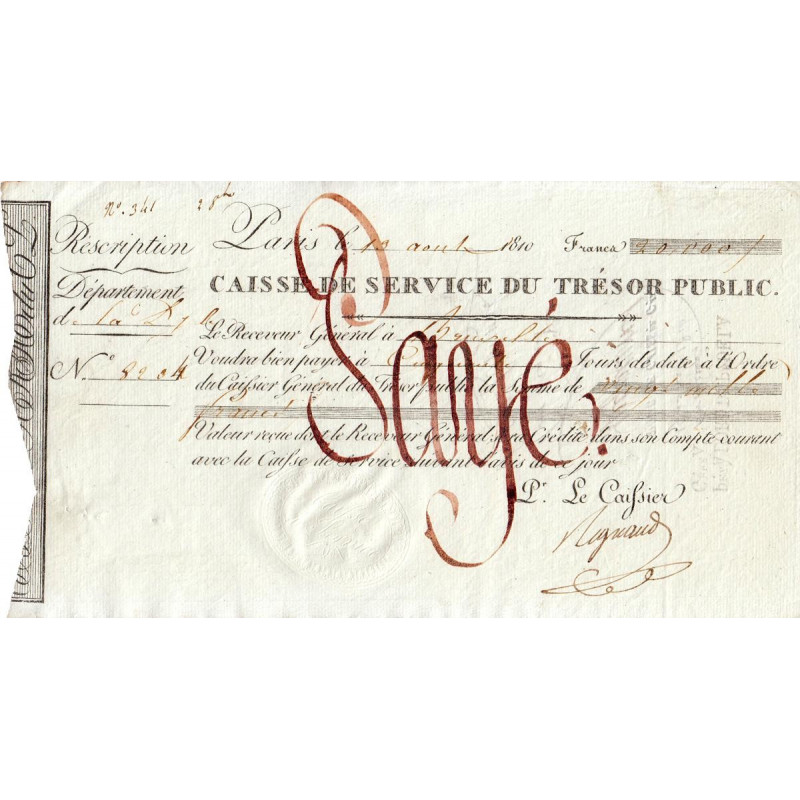 N°. 341
Rescription
Département
d
N° 8204
Paris le 10 aout 1810 Francs 20,000 f
CAISSE DE SERVICE DU TRÉSOR PUBLIC.
Le Receveur Général à Bruxelles
Voudra bien payer à Cinquante Jours de date à l'Ordre
du Caissier Général du Trésor public la Somme de vingt mille
francs
Valeur reçue dont le Receveur Général sera Crédité dans son Compte courant
avec la Caisse de Service suivant l'avis de ce jour
Pr. Le Caissier
Regnaud
Payé.